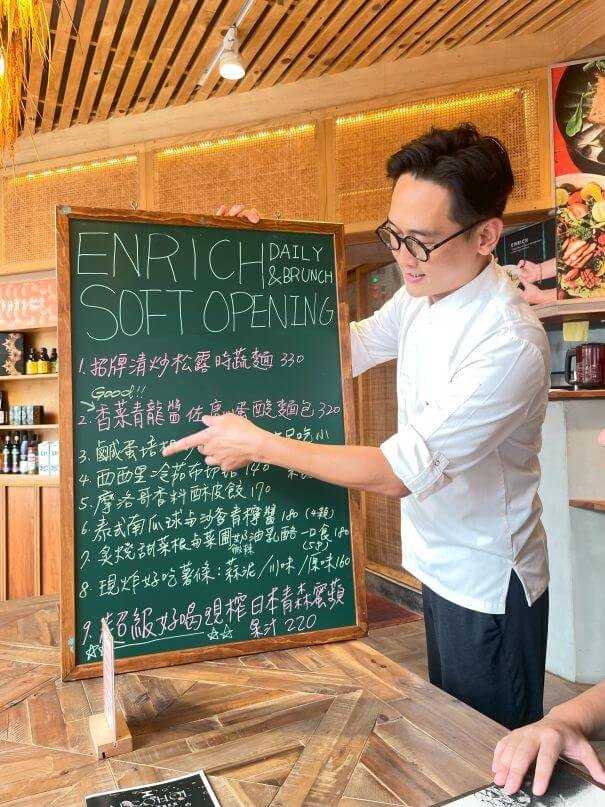 ENRICH DAILY & BRUNCH
SOFT OPENING
1. 招牌清炒松露時蔬麵 330
Good!!
2. 香菜青龍醬佐魔蛋酸麵包 320
3. 鹹蛋培
4. 西西里冷茄布切 140
5. 摩洛哥香料酥皮餃 170
6. 泰式南瓜球与沙爹青檸醬 180 (4顆)
7. 炙燒甜菜根与菜圃奶油乳酪一口食 180
(5P)
8. 現炸好吃薯條: 蒜泥/川味/原味 160
9. 超級好喝現榨日本青森蜜蘋
果汁 220
ENRICH